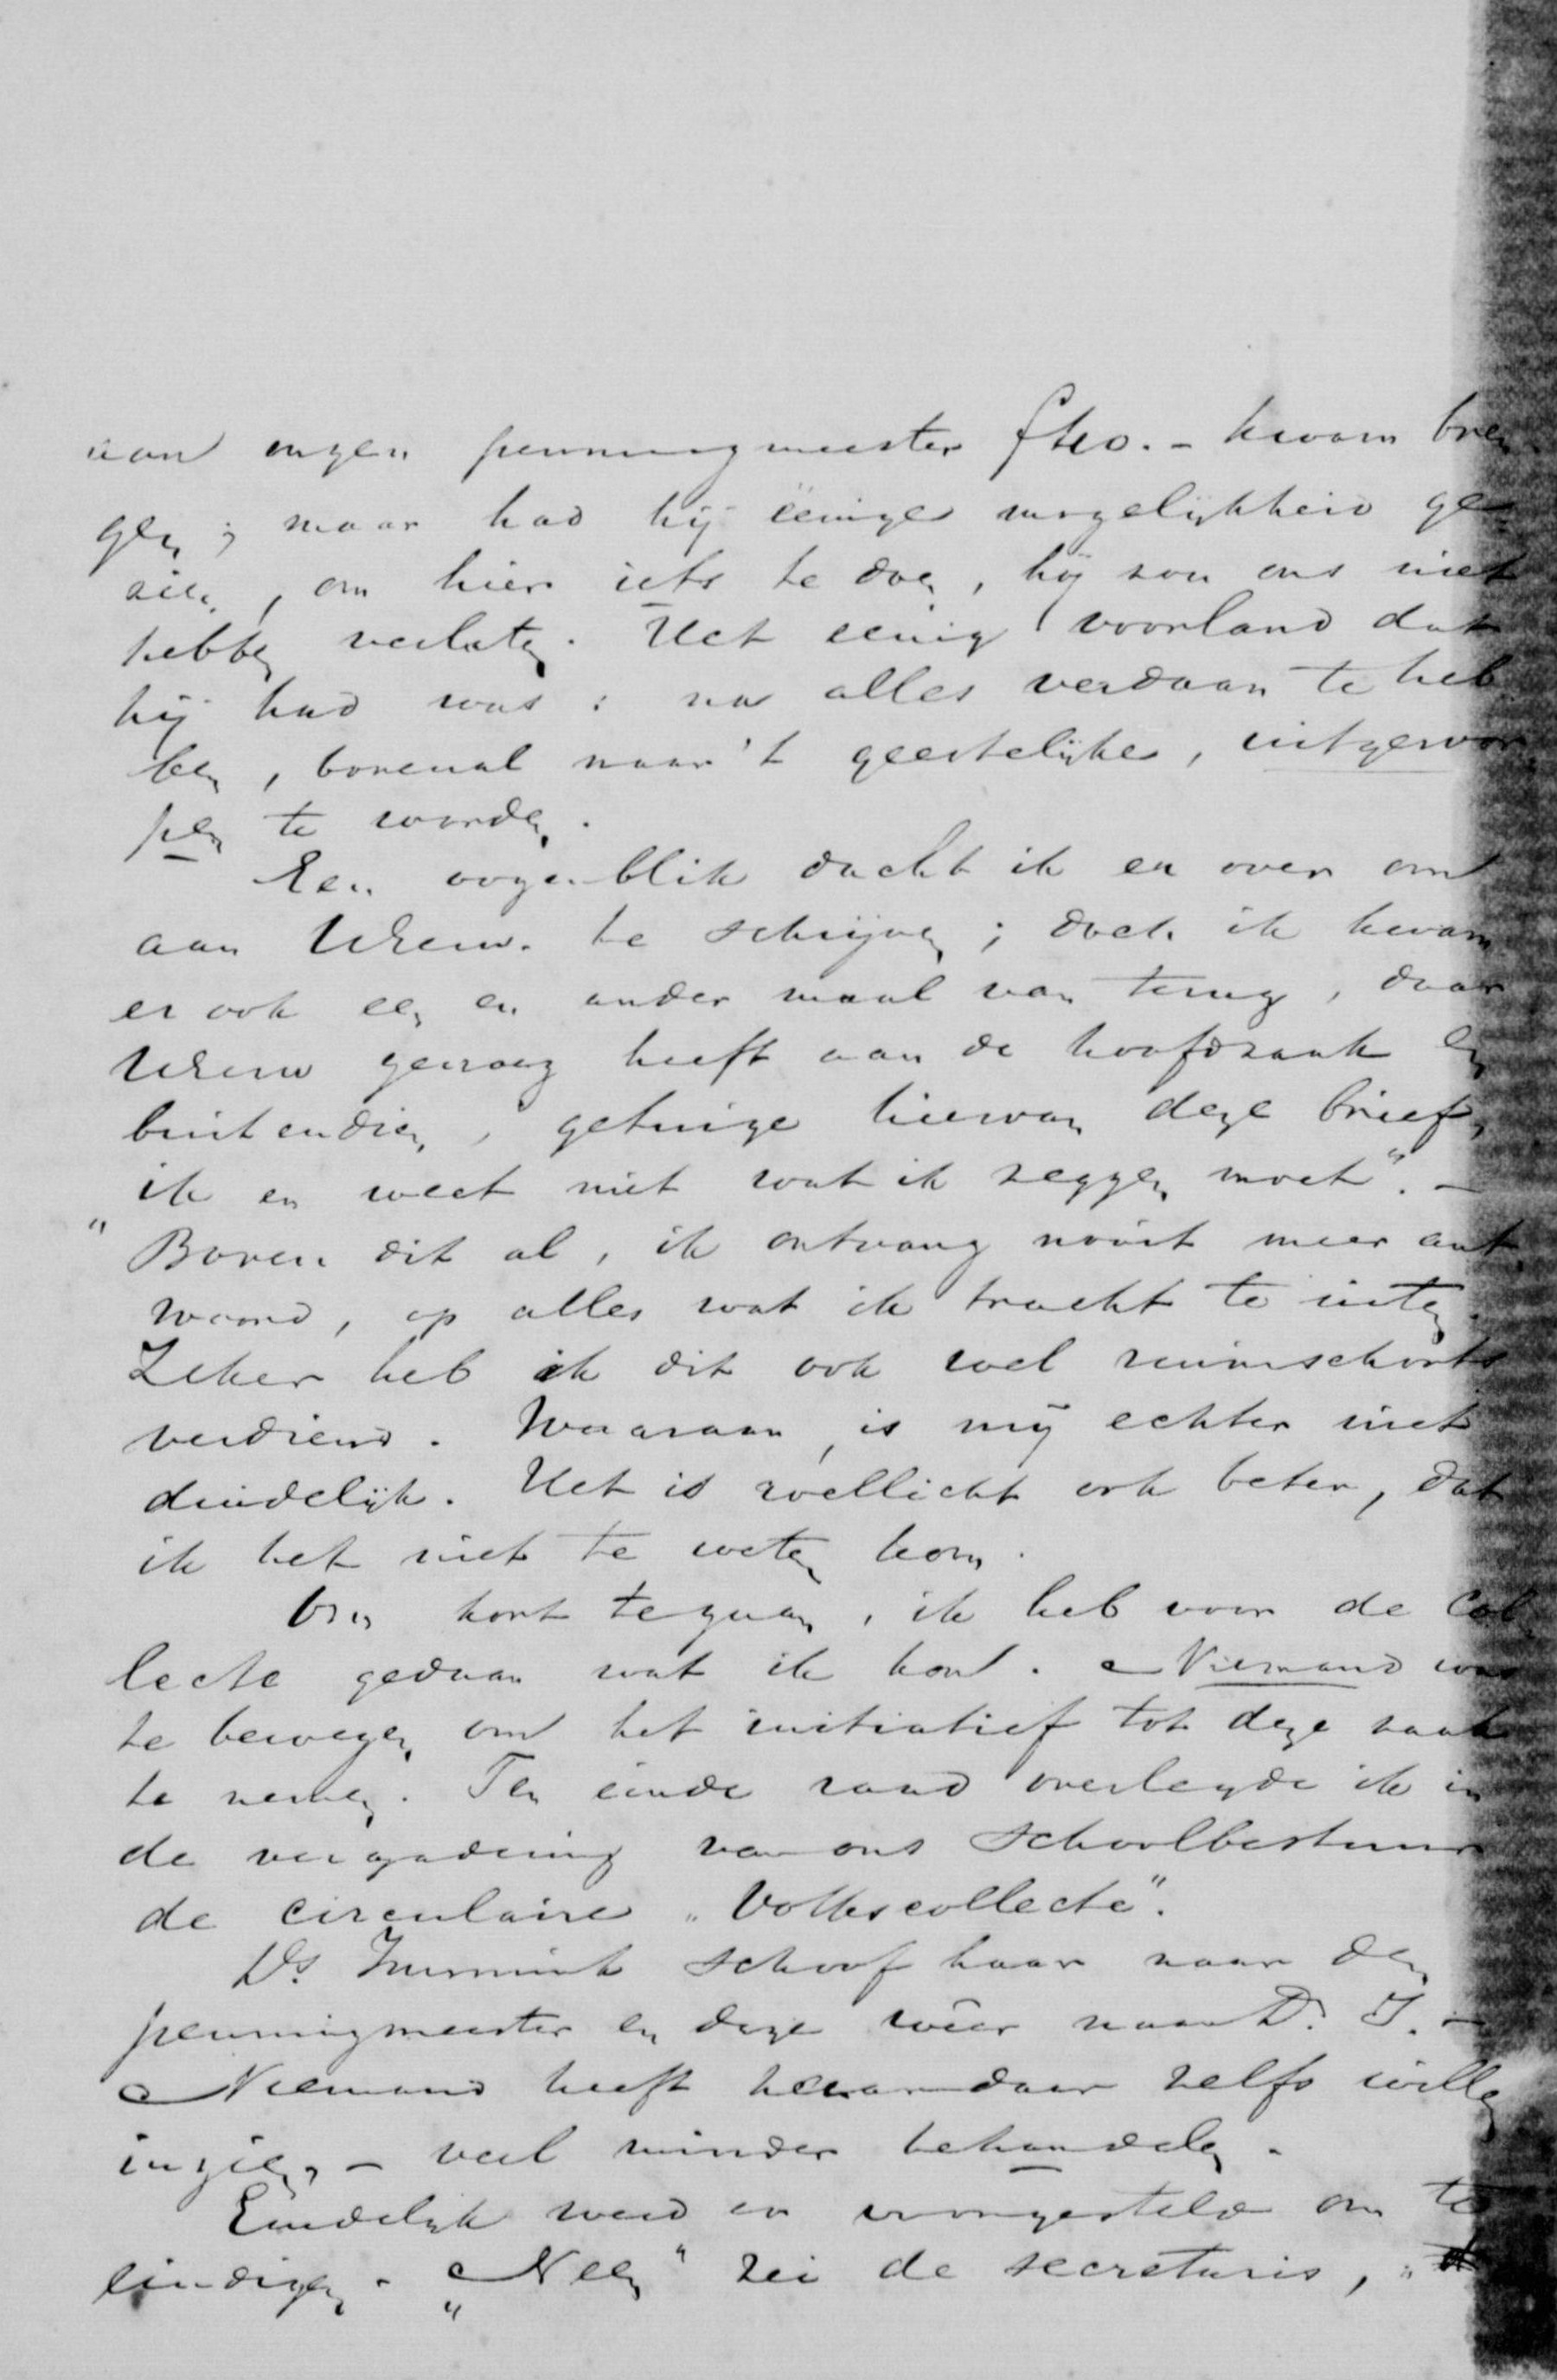 aan onzen penningmeester f 40.- kwam bren
gen; maar had hij eenige mogelijkheid ge
zien, om hier iets te doen, hij zou ons niet
hebben verlaten. Het eenig voorland dat
hij had was: na alles verdaan te heb
ben, bovenal naar 't geestelijke, uitgewor
pen te worden.
Een oogenblik dacht ik er over om
aan UEerw. te schrijven; doch ik kwam
er ook een en ander maal van terug, daar
UEerw genoeg heeft aan de hoofdzaak en
buitendien, getuige hiervan deze brief,
ik en weet niet wat ik zeggen moet". -
"Boven dit al, ik ontvang nooit meer ant
woord, op alles wat ik tracht te uiten.
Zeker heb ik dit ook wel ruimschoots
verdiend. Waaraan, is mij echter niet
duidelijk. Het is wellicht ook beter, dat
ik het niet te weten kom.
Om kort te gaan, ik heb voor de Col
lecte gedaan wat ik kon. Niemand was
te bewegen om het initiatief tot deze zaak
te nemen. Ten einde raad overlegde ik in
de vergadering van ons Schoolbestuur
de circulaire „Volkscollecte".
Ds. Immink schoof haar naar den
penningmeester en deze weer naar D. I. -
Niemand heeft haar daar zelfs willen
inzien, - veel minder behandelen.
Eindelijk werd er voorgesteld om te
eindigen. „Neen" zei de secretaris, „